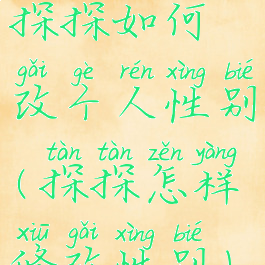 探探如何
gǎi gè rén xìng bié
改个人性别
tàn tàn zěn yàng
(探探怎样
xiū gǎi xìng bié
修改性别)